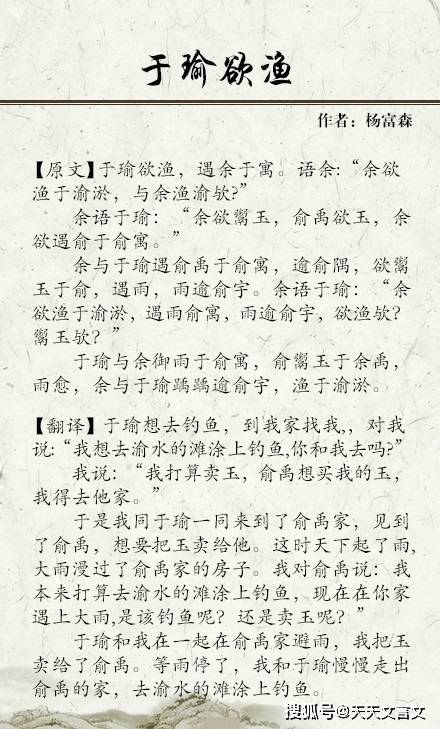 于瑜欲渔
作者：杨富森
【原文】于瑜欲渔，遇余于寓。语余：“余欲
渔于渝淤，与余渔渝欤?”
余语于瑜：“余欲鬻玉，俞禹欲玉，余
欲遇俞于俞寓。”
余与于瑜遇俞禹于俞寓，逾俞隅，欲鬻
玉于俞，遇雨，雨逾俞宇。余语于瑜：“余
欲渔于渝淤，遇雨俞寓，雨逾俞宇，欲渔欤？
鬻玉欤？”
于瑜与余御雨于俞寓，俞鬻玉于余禹，
雨愈，余与于瑜踽踽逾俞宇，渔于渝淤。
【翻译】于瑜想去钓鱼，到我家找我,，对我
说:“我想去渝水的滩涂上钓鱼,你和我去吗?”
我说：“我打算卖玉，俞禹想买我的玉，
我得去他家。”
于是我同于瑜一同来到了俞禹家，见到
了俞禹，想要把玉卖给他。这时天下起了雨,
大雨漫过了俞禹家的房子。我对俞禹说：我
本来打算去渝水的滩涂上钓鱼，现在在你家
遇上大雨,是该钓鱼呢？还是卖玉呢？”
于瑜和我在一起在俞禹家避雨，我把玉
卖给了俞禹。等雨停了，我和于瑜慢慢走出
俞禹的家，去渝水的滩涂上钓鱼。
搜狐号@天天文言文